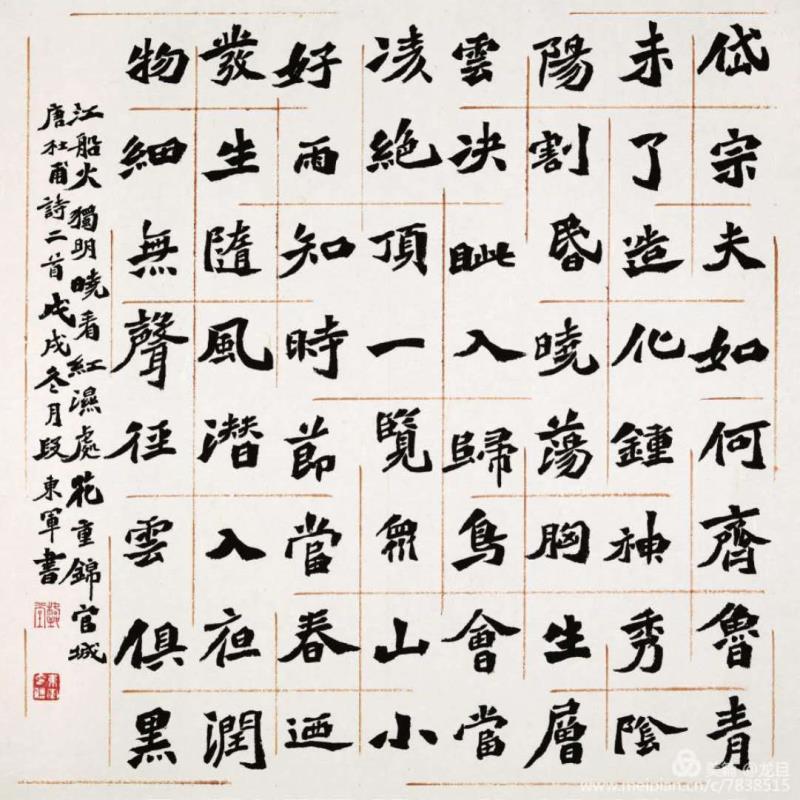 岱宗夫如何齊魯青
未了造化鍾神秀陰
陽割昏曉蕩胸生層
雲決眦入歸鳥會當
凌絕頂一覽衆山小
好雨知時節當春迺
發生隨風潛入夜潤
物細無聲徑雲俱黑
江船火獨明曉看紅濕處花重錦官城
唐杜甫詩二首戊戌冬月段東軍書
美篇 @龙目
www.meipian.cn/c/7838515